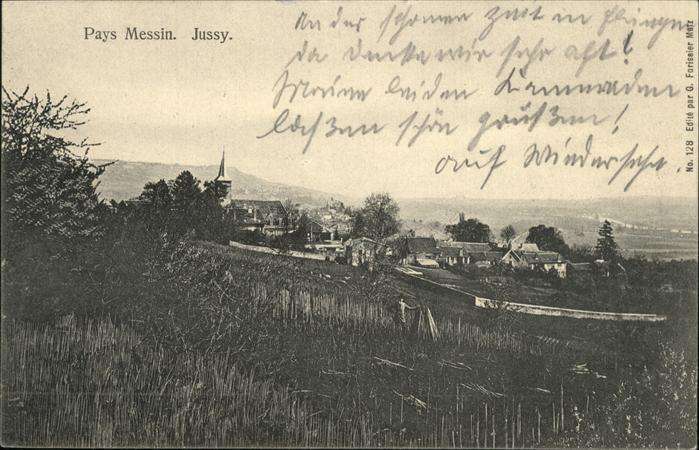 Pays Messin. Jussy.
An der schönen Zeit in
da denken wir sehr oft!
Meine beiden Kameraden
lassen schön grüßen!
auf Wiedersehn.
No. 128 Edité par G. Forissier Metz